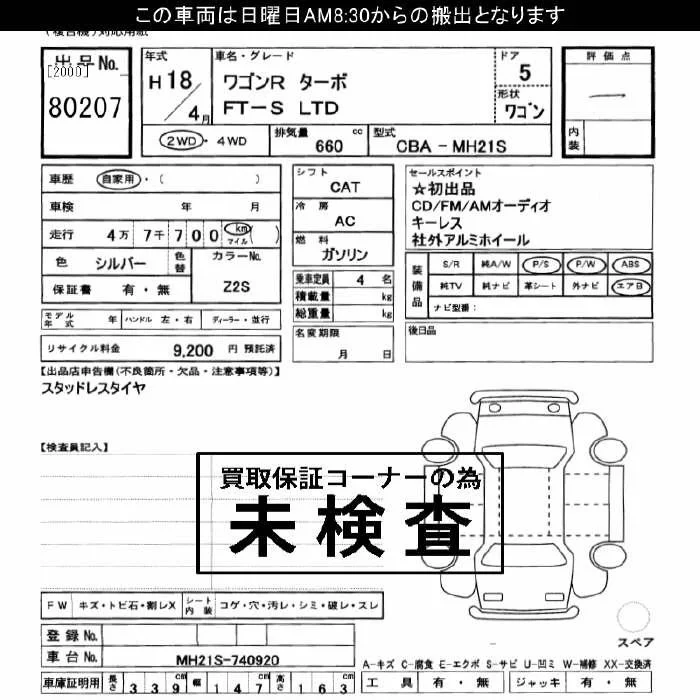 この車両は日曜日AM8:30からの搬出となります
(複合機)対応用紙
出品No.
[2000]
80207
年式
H 18 / 4月
車名・グレード
ワゴンR ターボ
FT-S LTD
ドア
5
形状
ワゴン
評価点
―
内装
2WD・4WD
排気量 660 cc
型式 CBA - MH21S
車歴 自家用・( )
車検 年 月
走行 4万 7千 7 0 0 km マイル ( )
色 シルバー 色替 カラーNo.
保証書 有・無 Z2S
モデル年式 年 ハンドル 左・右 ディーラー・並行
リサイクル料金 9,200 円 預託済
シフト
CAT
冷房
AC
燃料
ガソリン
乗車定員 4 名
積載量 kg
総重量 kg
名変期限
月 日
セールスポイント
☆初出品
CD/FM/AMオーディオ
キーレス
社外アルミホイール
装備品
S/R 純A/W P/S P/W ABS
純TV 純ナビ 革シート 外ナビ エアB
ナビ型番:
後日品
【出品店申告欄(不良箇所・欠品・注意事項等)】
スタッドレスタイヤ
【検査員記入】
買取保証コーナーの為
未検査
FW キズ・トビ石・割レX シート内装 コゲ・穴・汚レ・シミ・破レ・スレ
登録No.
車台No. MH21S-740920
車庫証明用 長さ 3 3 9 cm 幅 1 4 7 cm 高さ 1 6 3 cm
スペア
A-キズ C-腐食 E-エクボ S-サビ U-凹ミ W-補修 XX-交換済
工具 有・無 ジャッキ 有・無